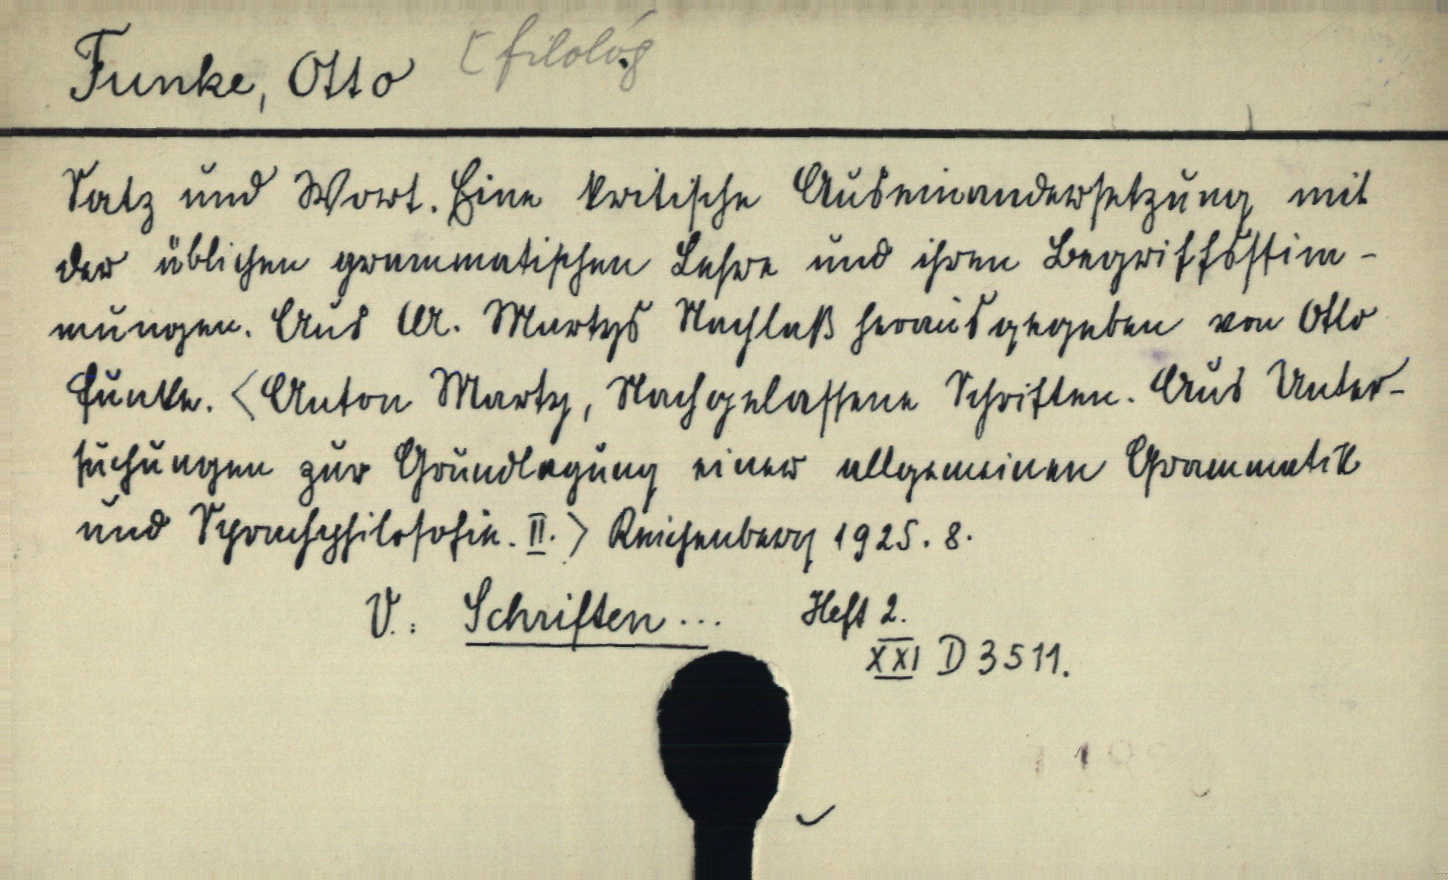 Funke, Otto [filológ
Satz und Wort. Eine kritische Auseinandersetzung mit
der üblichen grammatischen Lehre und ihren Begriffsstim-
mungen. Aus A. Martys Nachlaß herausgegeben von Otto
Funke. <Anton Marty, Nachgelassene Schriften. Aus Unter-
suchungen zur Grundlegung einer allgemeinen Grammatik
und Sprachphilosofie. II.> Reichenberg 1925. 8.
V.: Schriften... Heft 2.
XXI D 3511.